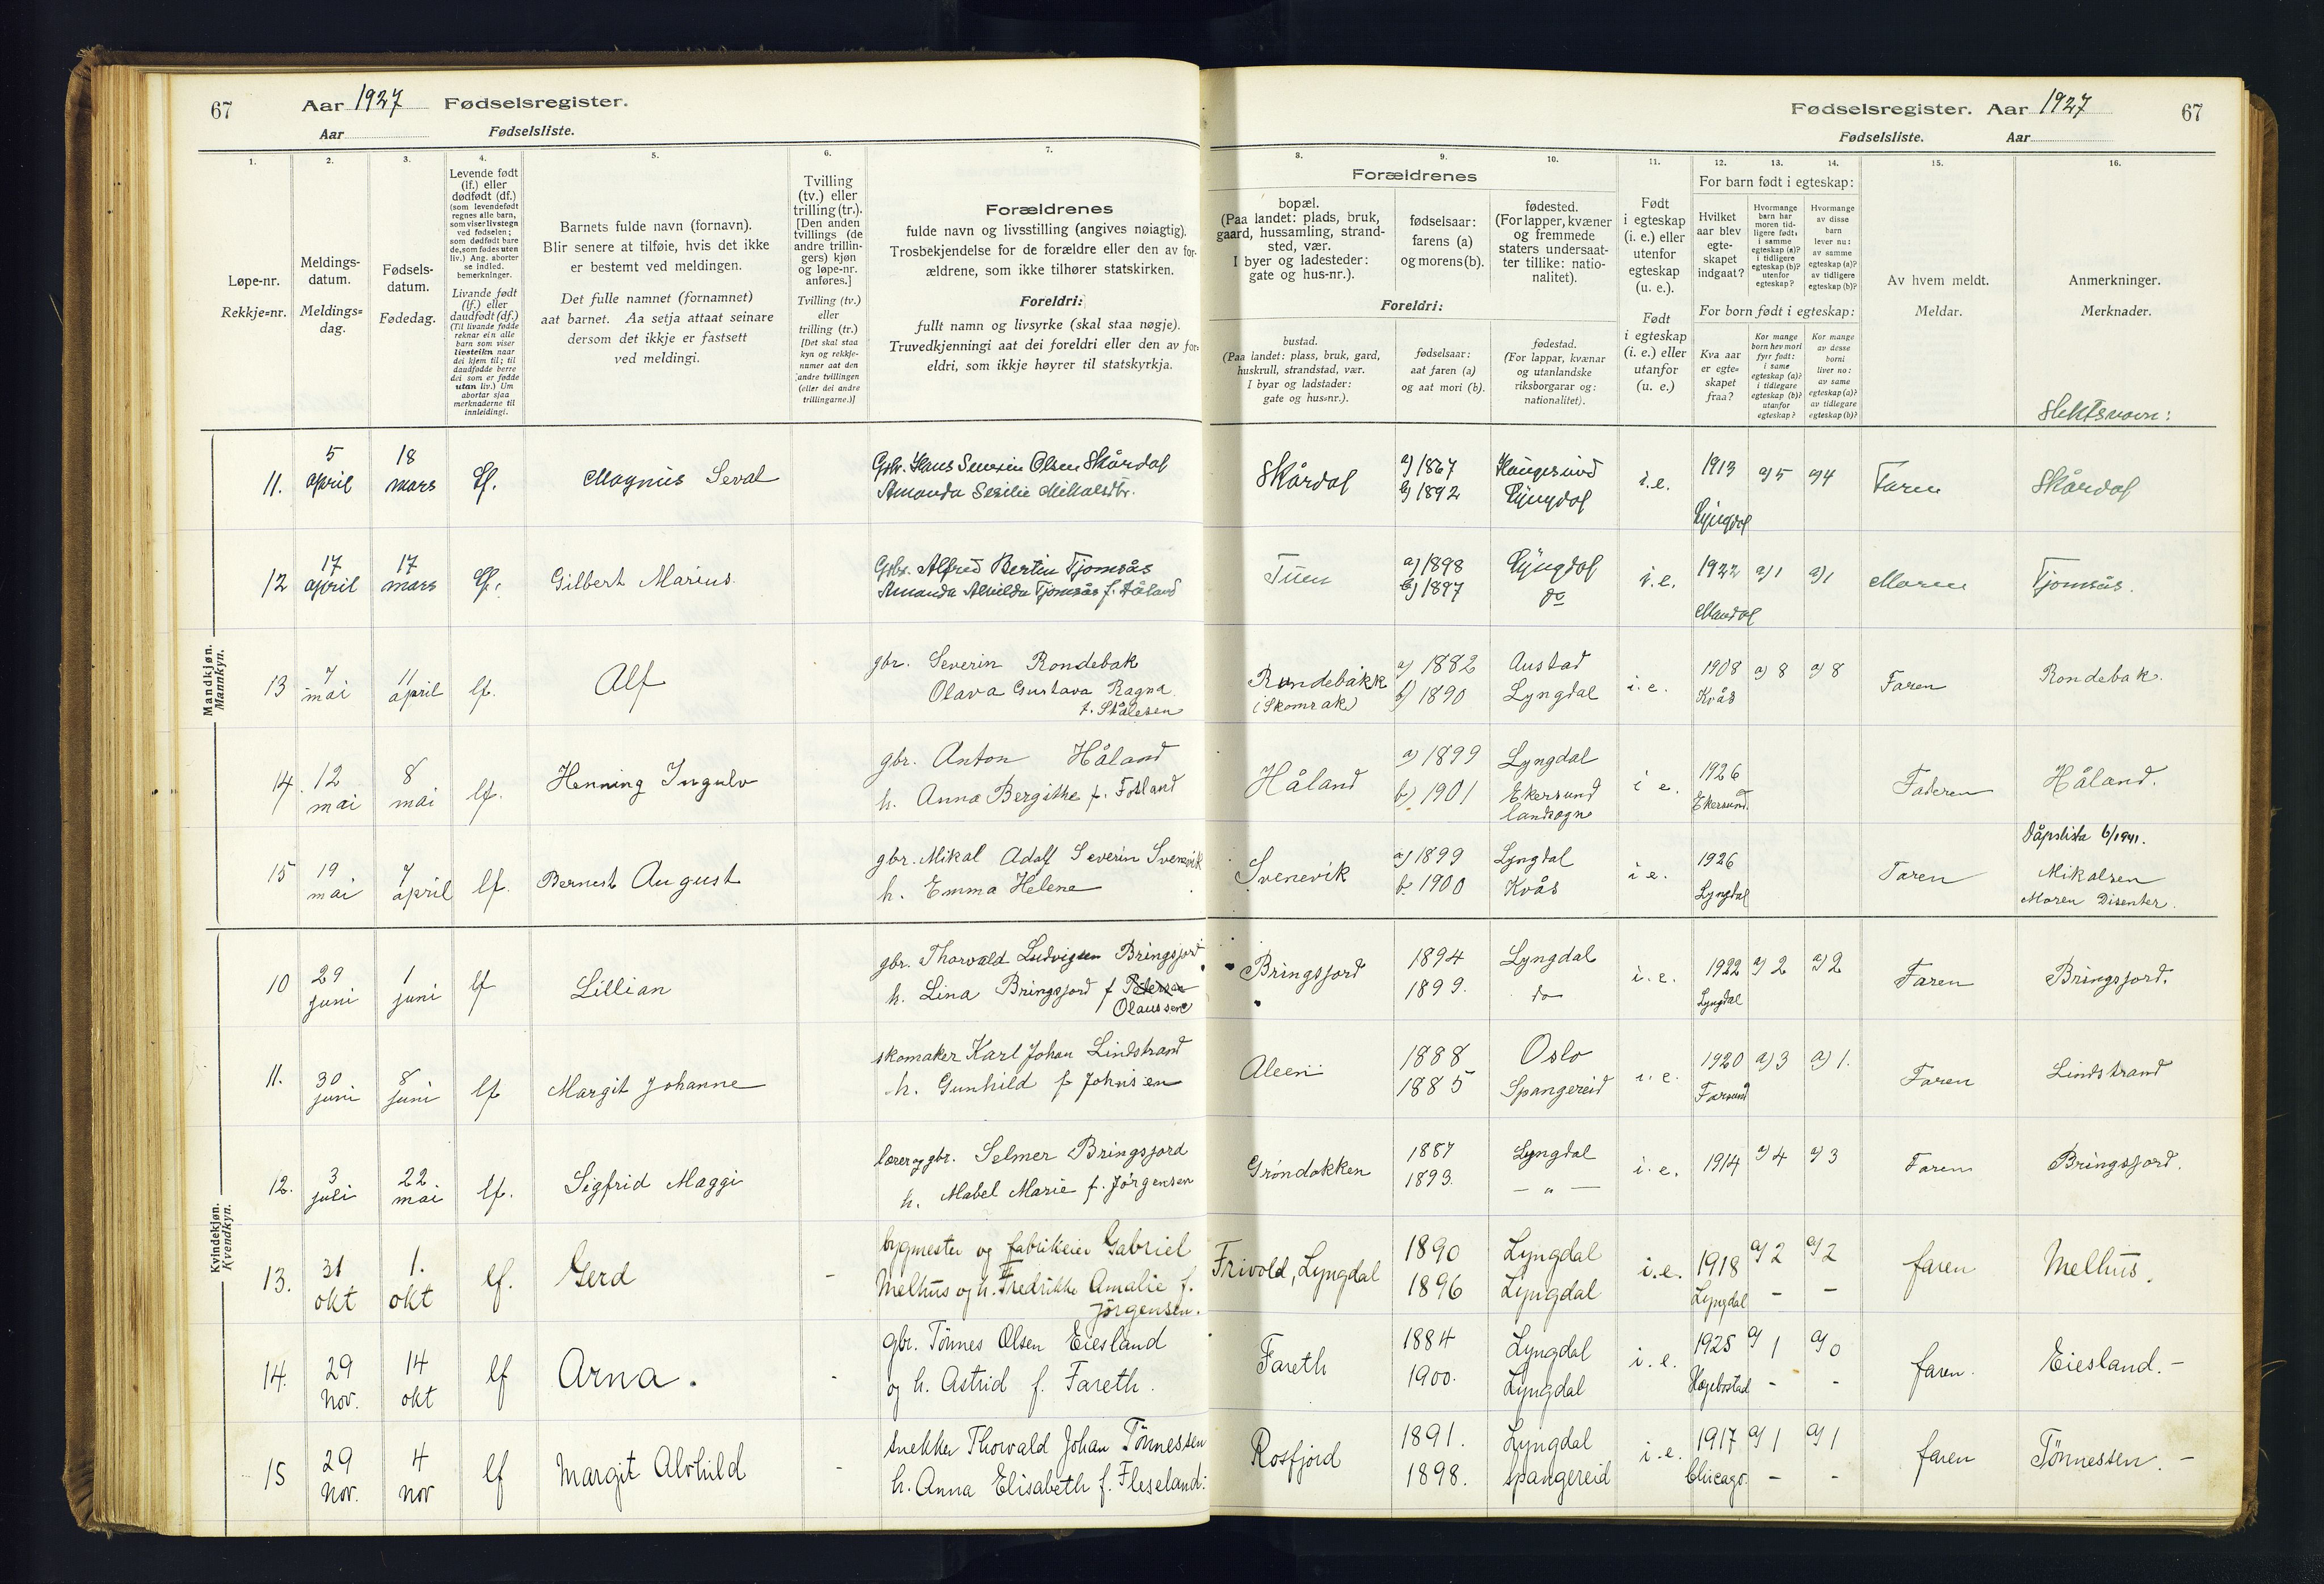 67 Aar 1927 Fødselsregister.
Aar Fødselsliste.
Fødselsregister. Aar 1927 67
Fødselsliste. Aar
1. 2. 3. 4. 5. 6. 7.
8. 9. 10. 11. 12. 13. 14. 15. 16.
Løpe-nr.
Rekkje=nr.
Meldings-
datum.
Meldings=
dag.
Fødsels-
datum.
Fødedag.
Levende født
(lf.) eller
dødfødt (df.)
(som levendefødt
regnes alle barn,
som viser livstegn
ved fødselen;
som dødfødt bare
de, som fødes uten
liv.) Ang. aborter
se indled.
bemerkninger.
Livande født
(lf.) eller
daudfødt (df.)
(Til livande fødde
reknar ein alle
barn som viser
livsteikn naar
dei kjem til; til
daudfødde berre
dei som er fødde
utan liv.) Um
abortar sjaa
merknaderne til
innleidingi.
Barnets fulde navn (fornavn).
Blir senere at tilføie, hvis det ikke
er bestemt ved meldingen.
Det fulle namnet (fornamnet)
aat barnet. Aa setja attaat seinare
dersom det ikkje er fastsett
ved meldingi.
Tvilling
(tv.) eller
trilling (tr.).
[Den anden
tvillings (de
andre trillin-
gers) kjøn
og løpe-nr.
anføres.]
Tvilling (tv.)
eller
trilling (tr.)
[Det skal staa
kyn og rekkje-
numer aat den
andre tvillingen
(eller dei andre
trillingarne.)]
Forældrenes
fulde navn og livsstilling (angives nøiagtig).
Trosbekjendelse for de forældre eller den av for-
ældrene, som ikke tilhører statskirken.
Foreldri:
fullt namn og livsyrke (skal staa nøgje).
Truvedkjenningi aat dei foreldri eller den av for-
eldri, som ikkje høyrer til statskyrkja.
Forældrenes
bopæl.
(Paa landet: plads, bruk,
gaard, hussamling, strand-
sted, vær.
I byer og ladesteder:
gate og hus-nr.).
fødselsaar:
farens (a)
og morens (b).
fødested.
(For lapper, kvæner
og fremmede
staters undersaat-
ter tillike: natio-
nalitet).
Foreldri:
bustad.
(Paa landet: plass, bruk, gard,
huskrull, strandstad, vær.
I byar og ladstader:
gate og hus=nr.).
fødselsaar:
aat faren (a)
og aat mori (b).
fødestad.
(For lappar, kvænar
og utanlandske
riksborgarar og:
nationalitet).
Født
i egteskap
(i. e.) eller
utenfor
egteskap
(u. e.).
Født
i egteskap
(i. e.) eller
utanfor
(u. e.)
For barn født i egteskap:
Hvilket
aar blev
egte-
skapet
indgaat?
Hvormange
barn har
moren tid-
ligere født:
i samme
egteskap (a)?
i tidligere
egteskap (b)?
utenfor
egteskap?
Hvormange
av disse
barn
lever nu:
av samme
egteskap (a)?
av tidligere
egteskap (b)?
For born født i egteskap:
Kva aar
er egte=
skapet
fraa?
Kor mange
born hev mori
fyrr født:
i same
egteskap (a)?
i tidlegare
egteskap (b)?
utanfor
egteskap?
Kor mange
av desse
borni
liver no:
av same
egteskap (a)?
av tidlegare
egteskap (b)?
Av hvem meldt.
Meldar.
Anmerkninger.
Merknader.
Slektsnavn:
Mandkjøn.
Mannkyn.
11. 5 april 18 mars lf. Magnus Seval
Gbr. Hans Severin Olsen Skårdal
Amanda Sesilie Mikalsdtr.
Skårdal a) 1867 Haugesund i.e. 1913 a) 5 a) 4 Faren Skårdal
b) 1892 Lyngdal Lyngdal
12 17 april 17 mars lf. Gilbert Marius.
Gbr. Alfred Bertin Tjomsås
Amanda Alvilda Tjomsås f. Håland
Tuen a) 1898 Lyngdal i.e. 1922 a) 1 a) 1 Moren Tjomsås.
b) 1897 do Mandal
13 7 mai 11 april lf. Alf
gbr. Severin Rondebak
Olava Gustava Ragna
f. Stålesen
Rondebakk a) 1882 Austad i.e. 1908 a) 8 a) 8 Faren Rondebak.
(Skomrak) b) 1890 Lyngdal Kvås
14. 12 mai 8 mai lf. Henning Ingulv
gbr. Anton Håland
h. Anna Bergithe f. Fotland
Håland a) 1899 Lyngdal i e. 1926 Faderen Håland.
b) 1901 Ekersund Ekersund.
landsogn
15 19 mai 7 april lf. Bernert August
gbr. Mikal Adolf Severin Svenevik
h. Emma Helene
Dåpslista 6/1941.
Svenevik a) 1899 Lyngdal i e. 1926 Faren Mikalsen
b. 1900 Kvås Lyngdal Moren Disenter.
Kvindekjøn.
Kvendkyn.
10 29 juni 1 juni lf Lillian
gbr. Thorvald Ludvigsen Bringsjord
h. Lina Bringsjord f Pedersen
Olaussen
Bringsjord 1894 Lyngdal i.e. 1922 a) 2 a) 2 Faren Bringsjord.
1899. do Lyngdal
11. 30 juni 8 juni lf Margit Johanne
skomaker Karl Johan Lindstrand
h. Gunhild f Johnsen
Aleen 1888 Oslo i.e. 1920 a) 3 a) 1. Faren Lindstrand
1885 Spangereid Farsund
12. 3 juli 22 mai lf. Sigfrid Maggi
lærer og gbr. Selmer Bringsjord
h. Mabel Marie f. Jørgensen
Grøndokken 1887 Lyngdal i.e. 1914 a) 4 a) 3 Faren Bringsjord.
1893. — " —
13. 31 okt 1. okt lf. Gerd -
bygmester og fabrikeier Gabriel
Melhus og h. Fredrikke Amalie f.
Jørgensen.
Frivold, Lyngdal 1890 Lyngdal i.e. 1918 a) 2 a) 2 faren Melhus.
1896 Lyngdal Lyngdal - -
14. 29 nov. 14 okt lf Arna. -
gbr. Tønnes Olsen Eiesland
og h. Astrid f. Fareth.
Fareth 1884 Lyngdal i.e. 1925 a) 1 a) 0 faren. Eiesland. -
1900. Lyngdal Hægebostad - -
15 29 nov. 4 nov lf Margit Alvhild -
snekker Thorvald Johan Tønnessen
h. Anna Elisabeth f. Fleseland.
Rosfjord 1891. Lyngdal i.e. 1917 a) 1 a) 1 faren Tønnessen. -
1898. Spangereid Chicago. - -